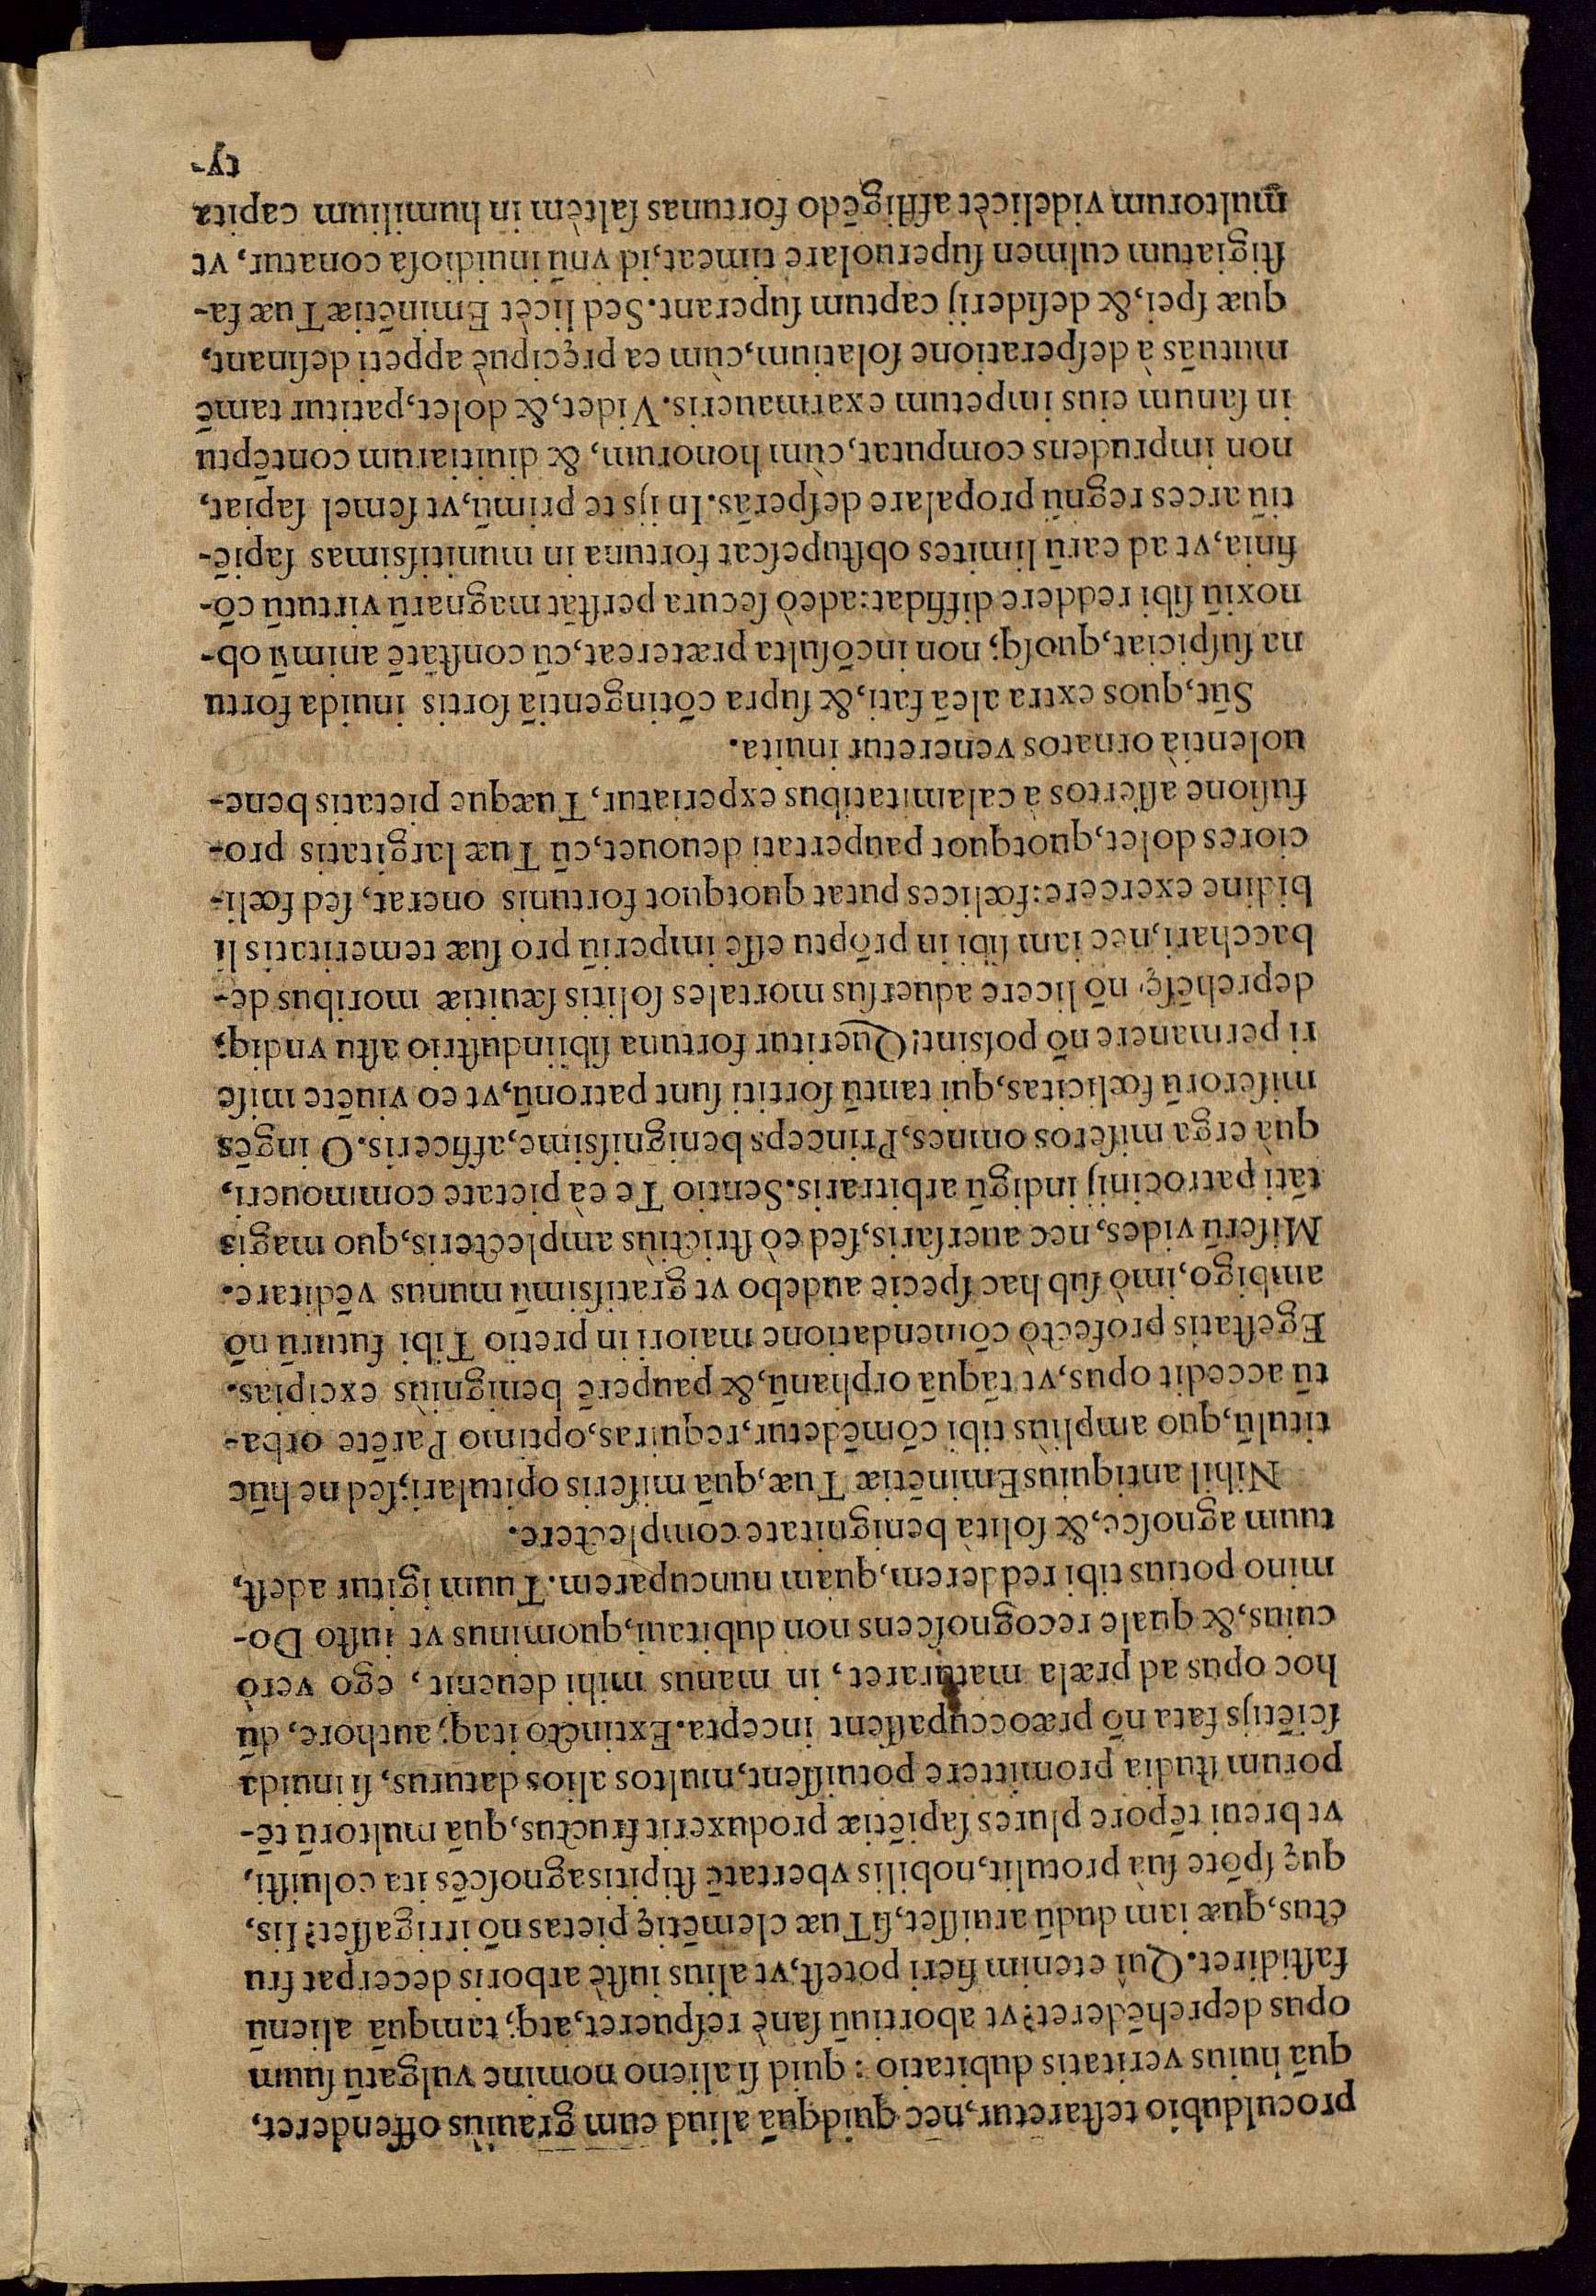 proculdubio teſtaretur, nec quidquā aliud eum grauiùs offenderet,
quā huius veritatis dubitatio: quid ſi alieno nomine vulgatū ſuum
opus deprehēderet? vt abortiuū ſanè reſpueret, atq; tamquā alienū
faſtidiret. Quî etenim fieri poteſt, vt alius iuſtè arboris decerpat fru
ctus, quæ iam dudū aruiſſet, ſi Tuæ clemētię pietas nō irrigaſſet? ſis,
quę ſpōte ſuà protulit, nobilis vbertatē ſtipitis agnoſcēs ita coluiſti,
vt breui tēpore plures ſapiētiæ produxerit fructus, quā multorū tē-
porum ſtudia promittere potuiſſent, multos alios daturus, ſi inuida
ſciētijs fata nō præoccupaſſent incepta. Extincto itaq; authore, dū
hoc opus ad præla maturaret, in manus mihi deuenit, ego verò
cuius, & quale recognoſcens non dubitaui, quominus vt iuſto Do-
mino potius tibi redderem, quàm nuncuparem. Tuum igitur adeſt,
tuum agnoſce, & ſolità benignitate complectere.
Nihil antiquius Eminētiæ Tuæ, quā miſeris opitulari; ſed ne hūc
titulū, quo ampliùs tibi cōmēdetur, requiras, optimo Parēte orba-
tū accedit opus, vt tāquā orphanū, & pauperē benigniùs excipias.
Egeſtatis profectò cōmendatione maiori in pretio Tibi futurū nō
ambigo, imò ſub hac ſpecie audebo vt gratiſsimū munus vēditare.
Miſerū vides, nec auerſaris, ſed eò ſtrictiùs amplecteris, quo magis
tāti patrocinij indigū arbitraris. Sentio Te eà pietate commoueri,
quà erga miſeros omnes, Princeps benigniſsime, afficeris. O ingēs
miſerorū fœlicitas, qui tantū ſortiti ſunt patronū, vt eo viuēte miſe
ri permanere nō poſsint! Queritur fortuna ſibi induſtrio aſtu vndiq;
deprehēſę, nō licere aduerſus mortales ſolitis ſæuitiæ moribus de-
bacchari, nec iam ſibi in prōptu eſſe imperiū pro ſuæ temeritatis li
bidine exercere: fœlices putat quotquot fortunis onerat, ſed fœli-
ciores dolet, quotquot paupertati deuouet, cū Tuæ largitatis pro-
fuſione aſſertos à calamitatibus experiatur, Tuæque pietatis bene-
uolentià ornatos veneretur inuita.
Sūt, quos extra aleā fati, & ſupra cōtingentiā ſortis inuida fortu
na ſuſpiciat, quoſq; non incōſulta prætereat, cū conſtātē animū ob-
noxiū ſibi reddere diffidat: adeò ſecura perſtāt magnarū virtutū cō-
finia, vt ad earū limites obſtupeſcat fortuna in munitiſsimas ſapiē-
tiū arces regnū propalare deſperās. In ijs te primū, vt ſemel ſapiat,
non imprudens computat, cùm honorum, & diuitiarum contēptu
in ſanum eius impetum exarmaueris. Videt, & dolet, patitur tamē
mutuās à deſperatione ſolatium, cùm ea pręcipuè appeti deſinant,
quæ ſpei, & deſiderij captum ſuperant. Sed licèt Eminētiæ Tuæ fa-
ſtigiatum culmen ſuperuolare timeat, id vnū inuidioſa conatur, vt
multorum videlicèt affligēdo fortunas ſaltèm in humilium capita
ty-